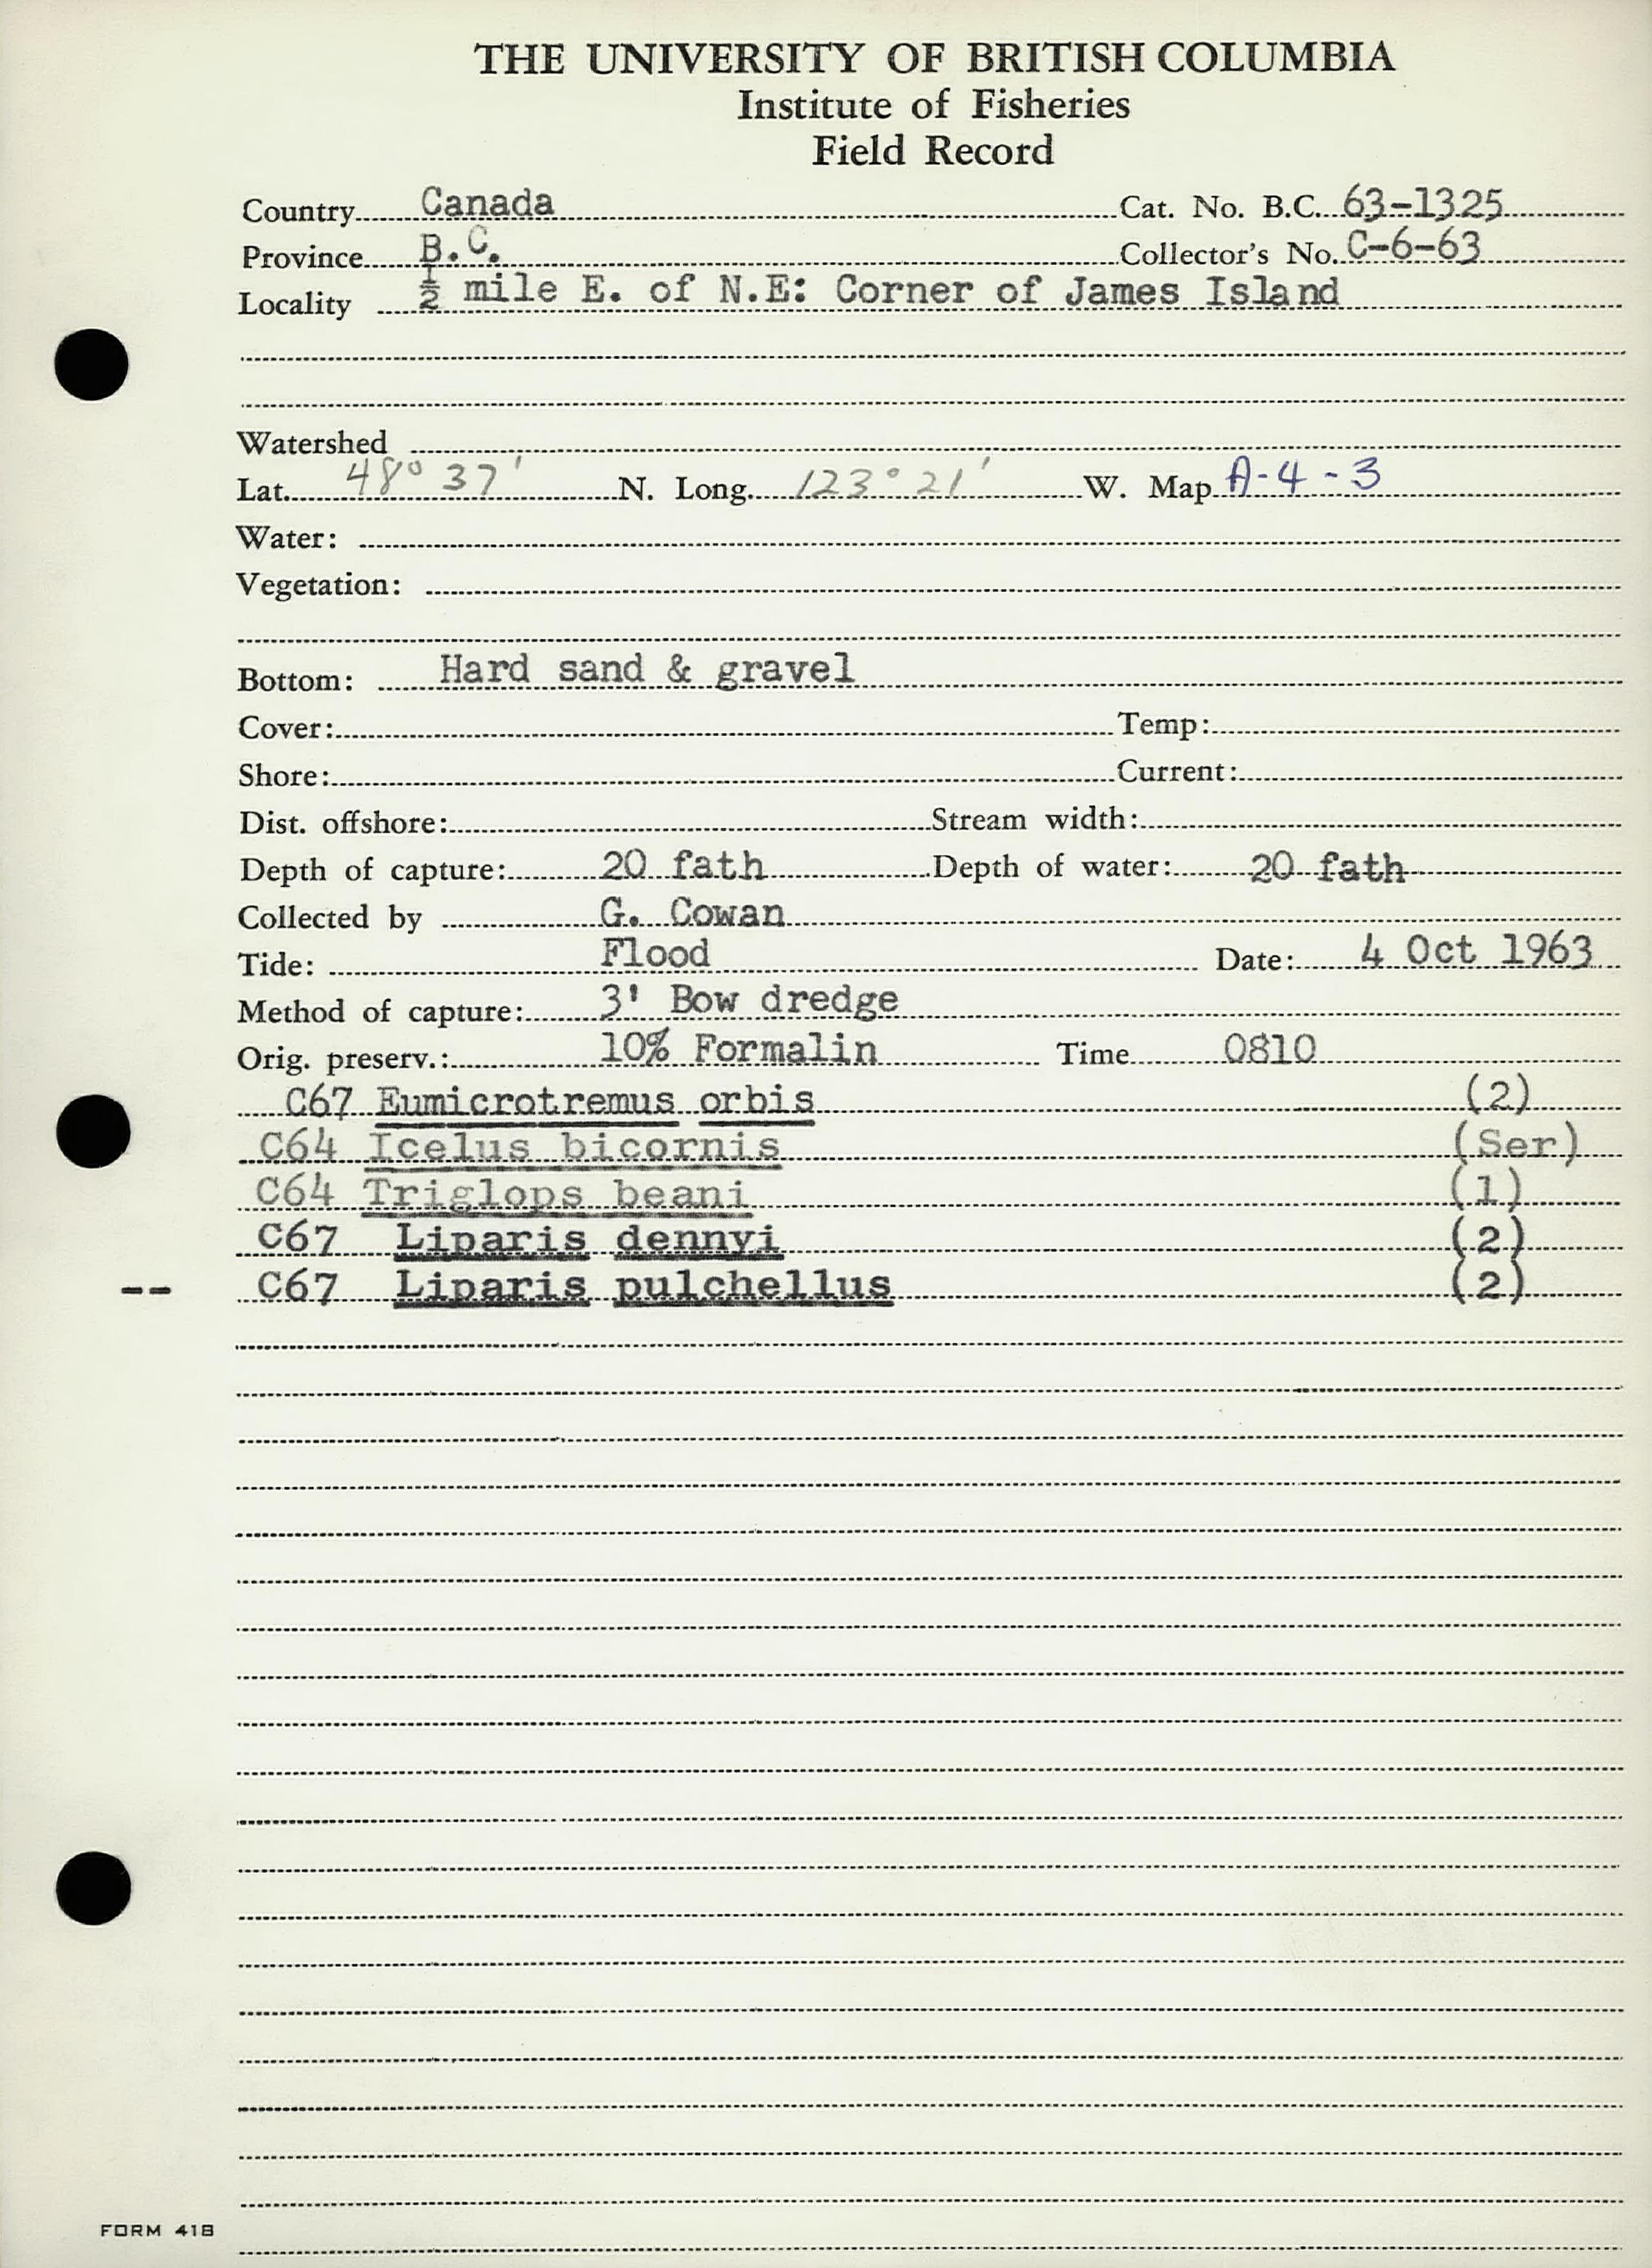 THE UNIVERSITY OF BRITISH COLUMBIA
Institute of Fisheries
Field Record
Country Canada Cat. No. B.C. 63-1325
Province B.C. Collector's No. C-6-63
Locality ½ mile E. of N.E: Corner of James Island
Watershed
Lat. 48° 37' N. Long. 123° 21' W. Map A-4-3
Water:
Vegetation:
Bottom: Hard sand & gravel
Cover: Temp:
Shore: Current:
Dist. offshore: Stream width:
Depth of capture: 20 fath Depth of water: 20 fath
Collected by G. Cowan
Tide: Flood Date: 4 Oct 1963
Method of capture: 3' Bow dredge
Orig. preserv.: 10% Formalin Time 0810
C67 Eumicrotremus orbis (2)
C64 Icelus bicornis (Ser)
C64 Triglops beani (1)
C67 Liparis dennyi (2)
-- C67 Liparis pulchellus (2)
FORM 418